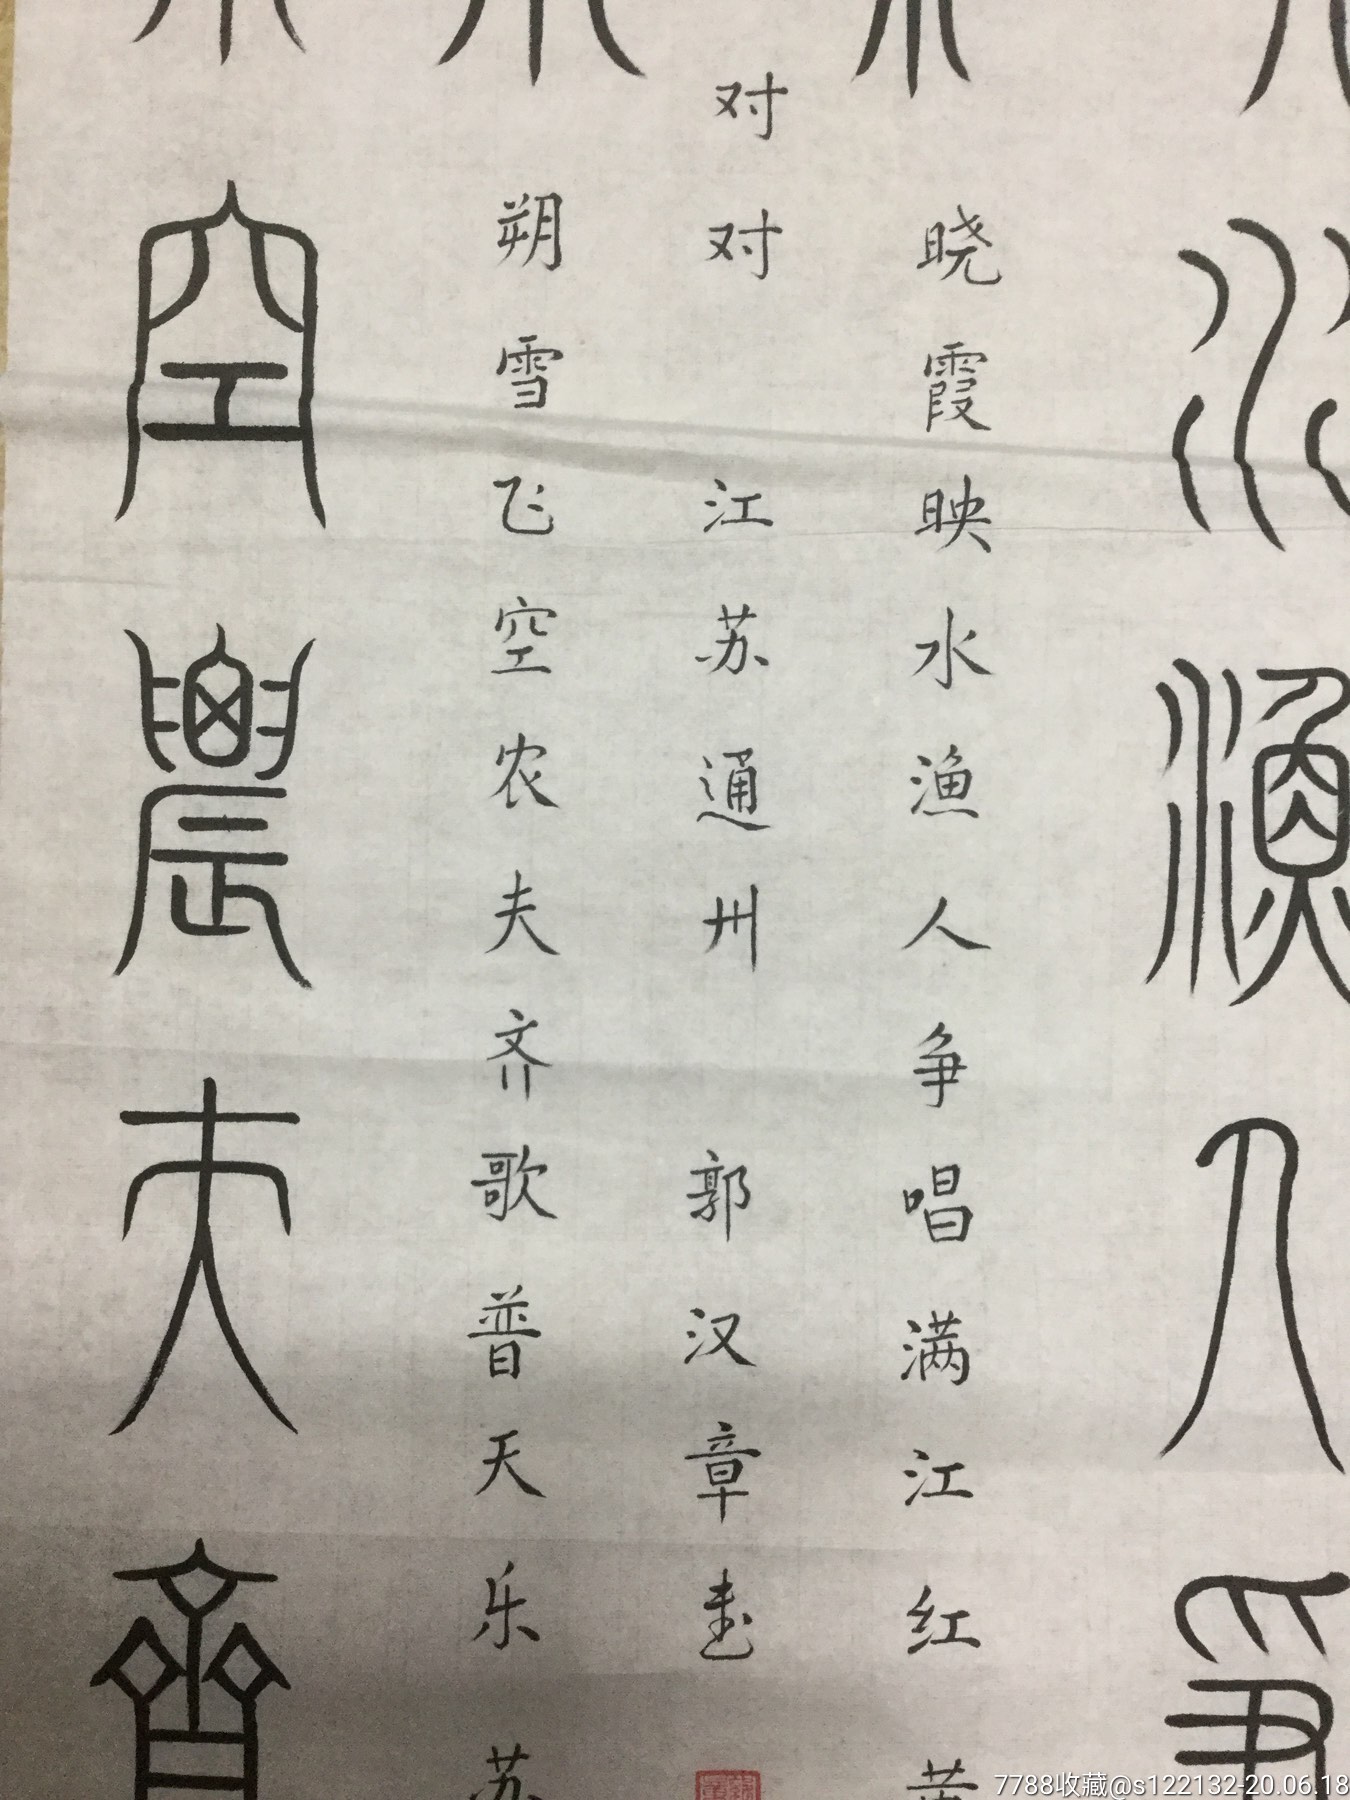 水渔人争
晓霞映水渔人争唱满江红
对对 江苏通州 郭汉章书
朔雪飞空农夫齐歌普天乐苏
空農夫齊
7788收藏@s122132-20.06.18